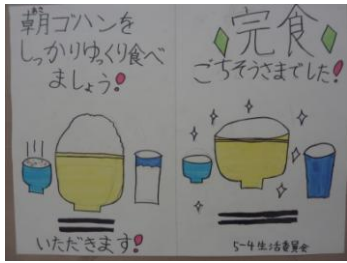 朝ゴハンを
しっかりゆっくり食べ
ましょう!
いただきます!
完食
ごちそうさまでした!
5-4生活委員会